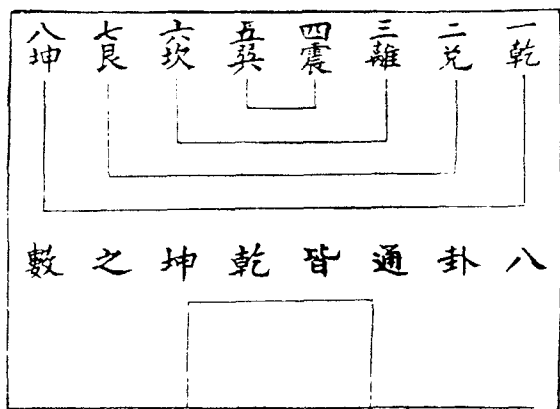 一乾 二兌 三離 四震 五巽 六坎 七艮 八坤
八卦通皆乾坤之數